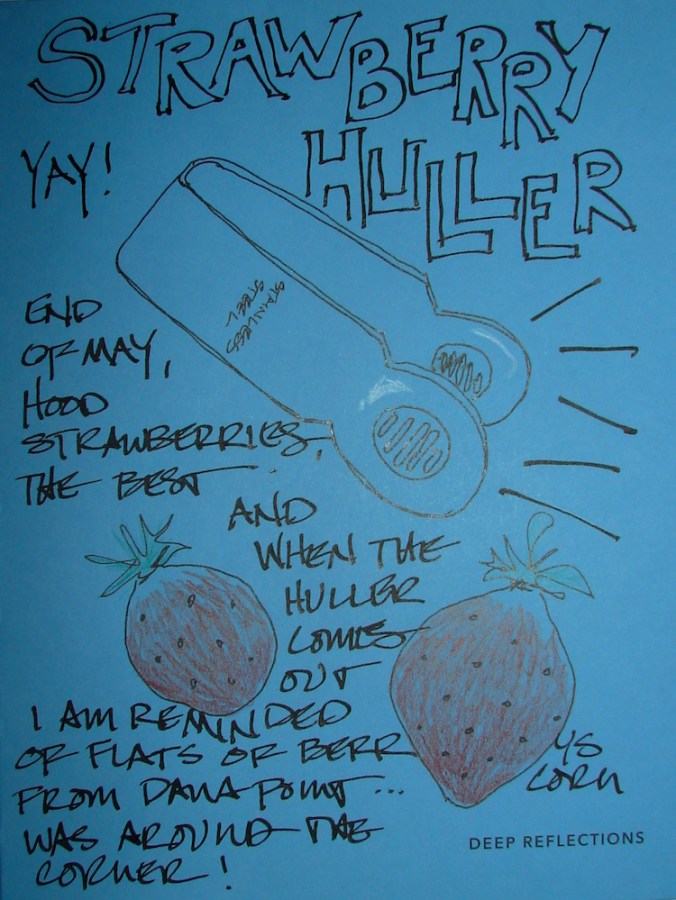 STRAWBERRY
HULLER
YAY!
STAINLESS
STEEL
END
OF MAY,
HOOD
STRAWBERRIES,
THE BEST
AND
WHEN THE
HULLER
COMES
OUT
I AM REMINDED
OF FLATS OF BERR YS
FROM DANA POINT... CORN
WAS AROUND THE
CORNER!
DEEP REFLECTIONS